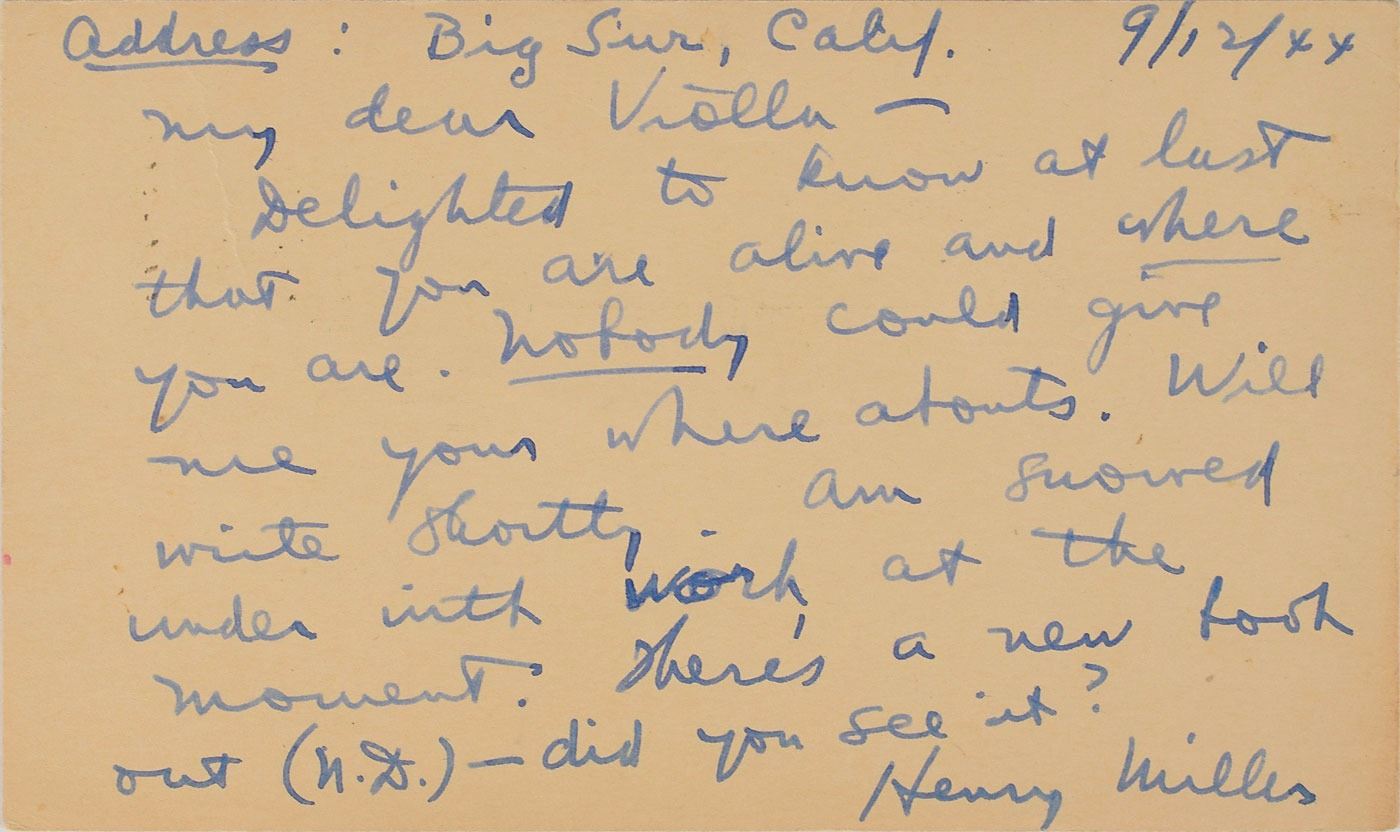 Address : Big Sur, Calif. 9/12/44
My dear Viölla —
Delighted to know at last
that you are alive and where
you are. Nobody could give
me your where abouts. Will
write shortly. Am snowed
under with work at the
moment. There's a new book
out (N.D.) — did you see it?
Henry Miller